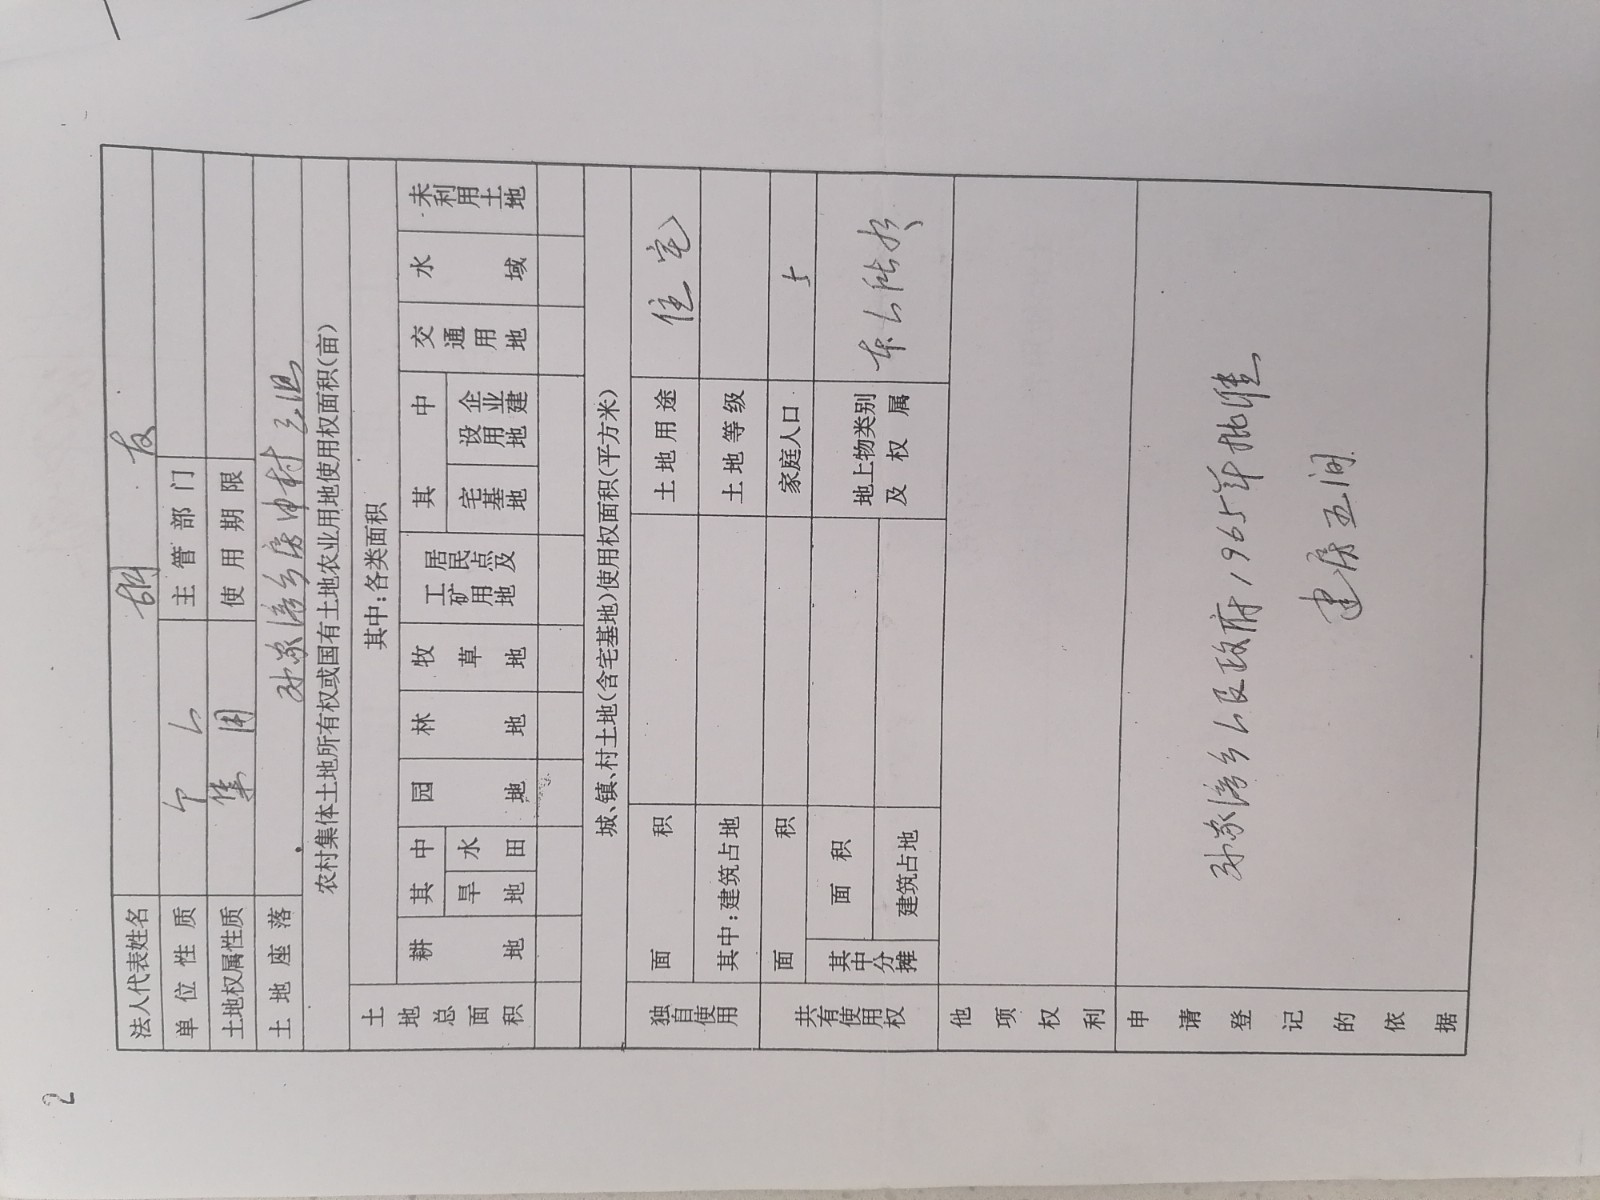 2
法人代表姓名 胡 友
单位性质 个人 主管部门
土地权属性质 集团 使用期限
土地座落 孙家湾乡唐中村三组
农村集体土地所有权或国有土地农业用地使用权面积(亩)
土地总面积 其中:各类面积
耕地 其中 园地 林地 牧草地 居民点及工矿用地 其中 交通用地 水域 未利用土地
旱地 水田 宅基地 企业建设用地
城、镇、村土地(含宅基地)使用权面积(平方米)
独自使用 面积 土地用途 住宅
其中:建筑占地 土地等级
共有使用权 面积 家庭人口 5
其中分摊 面积 地上物类别及权属 本人所有
建筑占地
他项权利
申请登记的依据 孙家湾乡人民政府1965年批准
建房五间